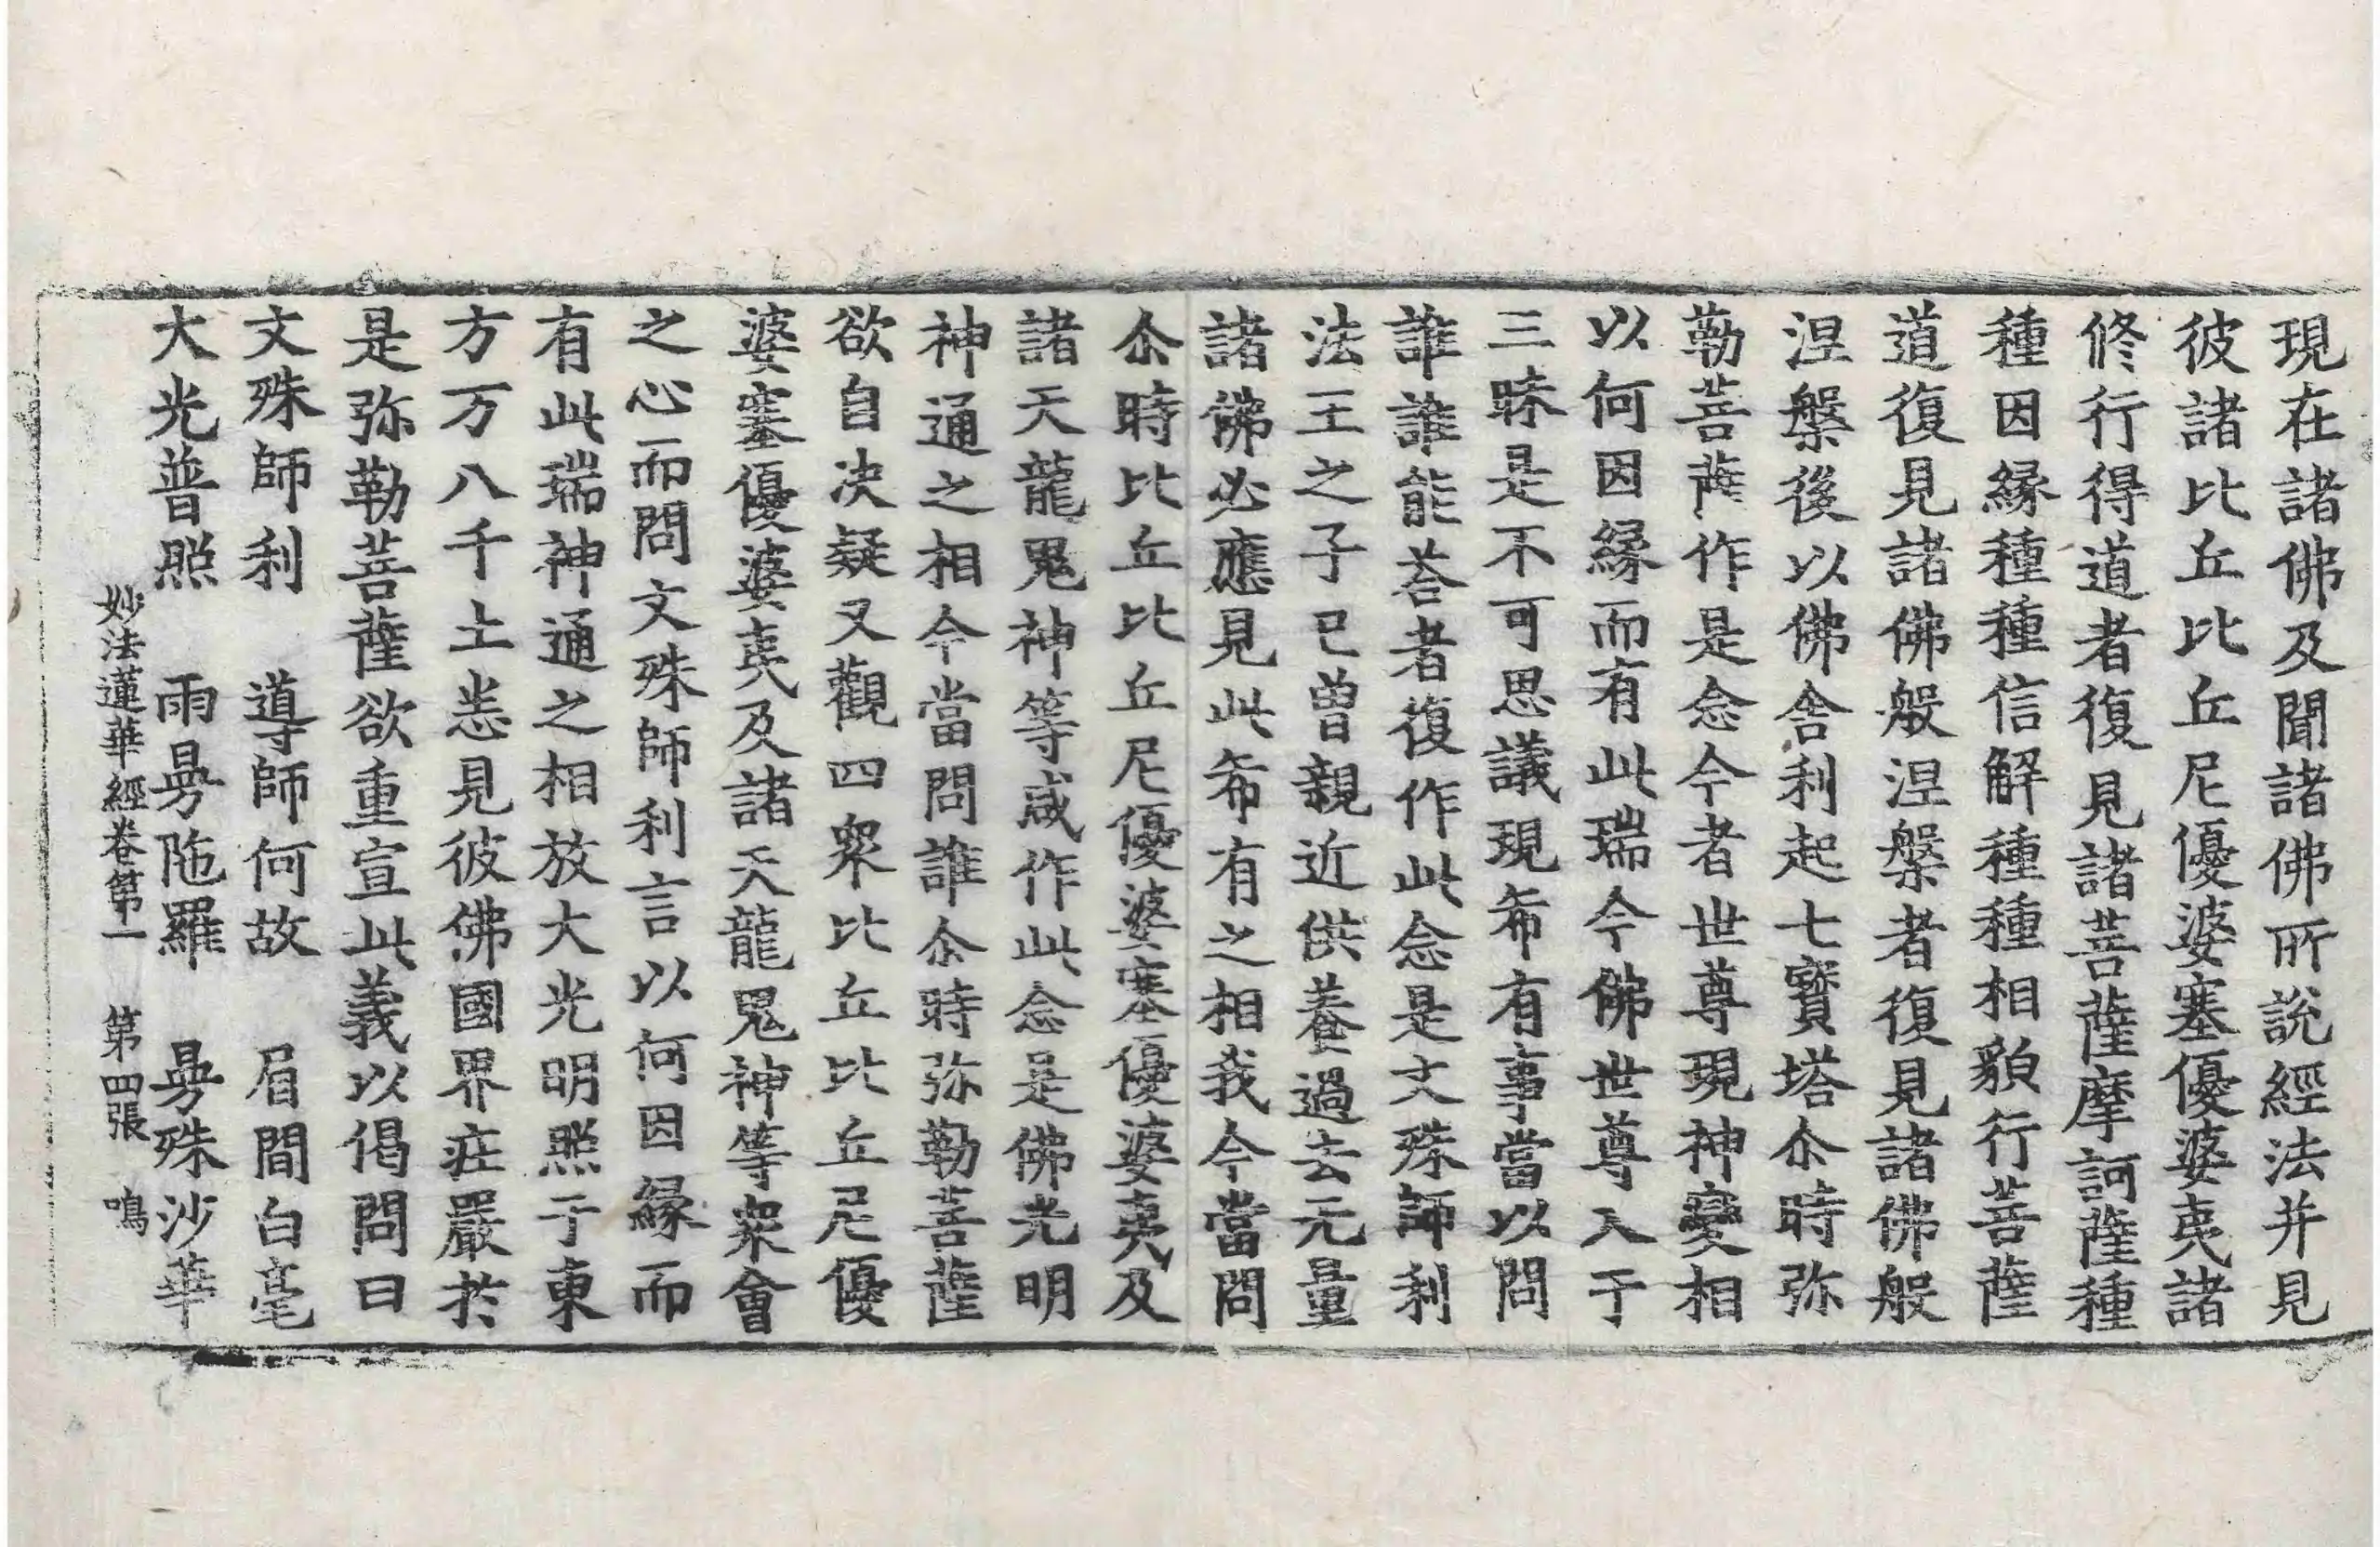 現在諸佛及聞諸佛所說經法并見
彼諸比丘比丘尼優婆塞優婆夷諸
修行得道者復見諸菩薩摩訶薩種
種因緣種種信解種種相貌行菩薩
道復見諸佛般涅槃者復見諸佛般
涅槃後以佛舍利起七寶塔尒時弥
勒菩薩作是念今者世尊現神變相
以何因緣而有此瑞今佛世尊入于
三昧是不可思議現希有事當以問
誰誰能荅者復作此念是文殊師利
法王之子已曾親近供養過去无量
諸佛必應見此希有之相我今當問
尒時比丘比丘尼優婆塞優婆夷及
諸天龍鬼神等咸作此念是佛光明
神通之相今當問誰尒時弥勒菩薩
欲自決疑又觀四衆比丘比丘尼優
婆塞優婆夷及諸天龍鬼神等衆會
之心而問文殊師利言以何因緣而
有此瑞神通之相放大光明照于東
方万八千土悉見彼佛國界莊嚴於
是弥勒菩薩欲重宣此義以偈問曰
文殊師利　導師何故　眉間白毫
大光普照　雨曼陁羅　曼殊沙華
妙法蓮華經卷第一　第四張　鳴